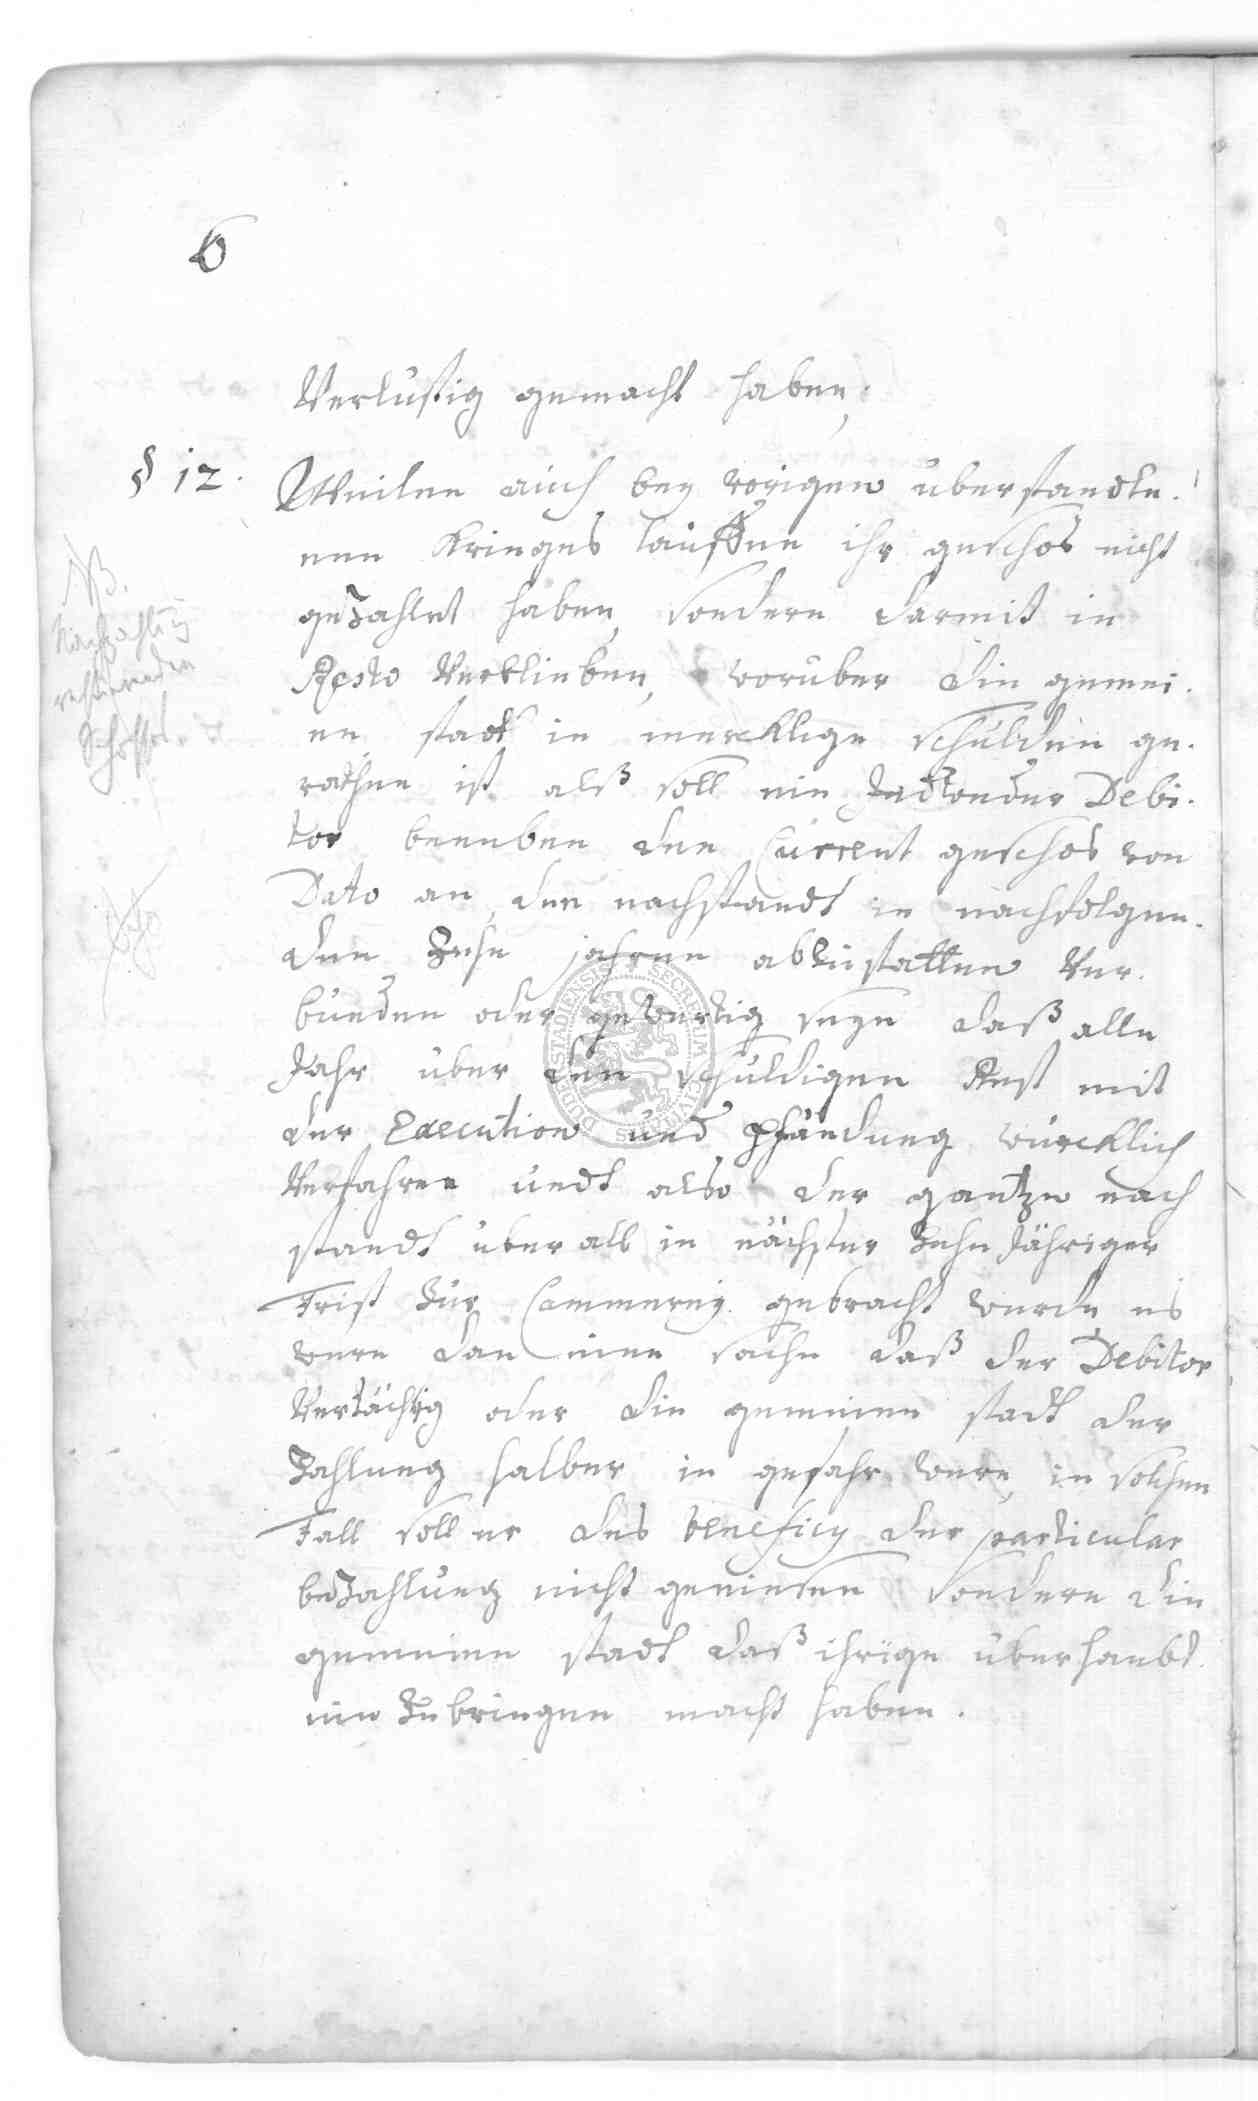 6
Verlustig gemacht haben,
§ 12.
Weilen auch bey vorigen überstande¬
nen Krieges läufften ihr geschos nicht
gezahlet haben, sondern darmit in
Resto verblieben, worüber die gemei¬
ne stadt in mercklige schulden ge¬
rathen ist alß soll ein Jedweder Debi¬
tor beneben den Current geschos von
Dato an, den nachstandt in nachfolgen¬
den Zehn jahren abzustatten Ver¬
bunden oder gewertig seyn daß alle
Jahr über den schuldigen Rest mit
der Execution und Pfändung würcklich
Verfahren undt also der gantze nach
standt überall in nächster Zehn Jähriger
Frist zur Cammerey gebracht werde es
were dan eine sache daß der Debitor
Verdächtig oder die gemeine stadt der
Zahlung halber in gefahr were, in solchen
Fall soll er des beneficy der particular
bezahlung nicht geniesen sondern die
gemeine stadt daß ihrige überhaubt
ein zu bringen macht haben.
NB.
Nachzahlung
restirenden
Schosses
SECRETUM CIVITATIS DUDERSTADIENSIS